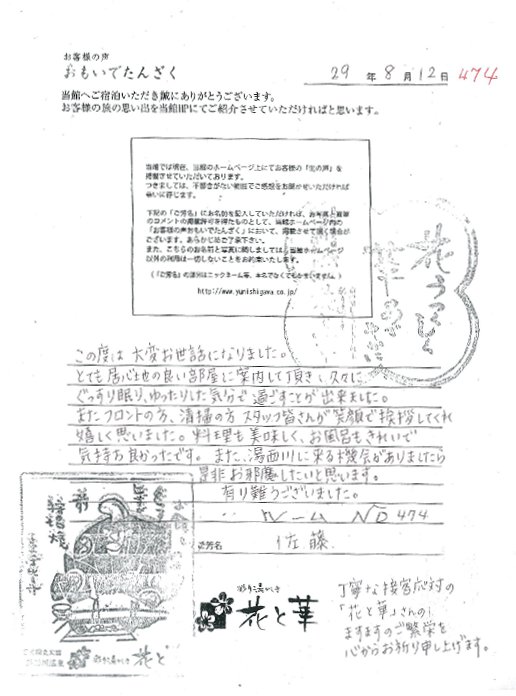 お客様の声
おもいでたんざく
29年 8月 12日 474
当館へご宿泊いただき誠にありがとうございます。
お客様の旅の思い出を当館HPにてご紹介させていただければと思います。
当館では現在、当館のホームページ上にてお客様の『生の声』を
掲載させていただいております。
つきましては、不都合がない範囲でご感想をお聞かせいただければ
幸いに存じます。
下記の「ご芳名」にお名前を記入していただければ、お写真と直筆
のコメントの掲載許可を得たものとして、当館ホームページ内の
「お客様の声おもいでたんざく」において、掲載させて頂く場合が
ございます。あらかじめご了承下さい。
また、こちらのお名前と写真に関しましては、当館ホームページ
以外の利用は一切しないことをお約束いたします。
(「ご芳名」の部分はニックネーム等、本名でなくてもかまいません。)
http://www.yunishigawa.co.jp/
この度は大変お世話になりました。
とても居心地の良い部屋に案内して頂き、久々に
ぐっすり眠り、ゆったりした気分で過ごすことが出来ました。
またフロントの方、清掃の方スタッフ皆さんが笑顔で挨拶してくれ
嬉しく思いました。料理も美味しく、お風呂もきれいで
気持ち良かったです。また、湯西川に来る機会がありましたら
是非お邪魔したいと思います。
有り難うございました。
ルーム NO 474
ご芳名 佐藤
彩り湯かしき
花と華
丁寧な接客応対の
「花と華」さんの
ますますのご繁栄を
心からお祈り申し上げます。
彩り湯かしき 花と